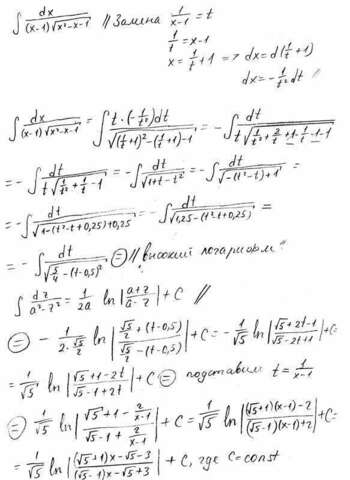 ∫ dx/((x-1)√(x²-x-1)) // Замена 1/(x-1) = t
1/t = x-1
x = 1/t + 1 => dx = d(1/t + 1)
dx = -1/t² dt //
∫ dx/((x-1)√(x²-x-1)) = ∫ t·(-1/t²)dt/√((1/t+1)²-(1/t+1)-1) = -∫ dt/(t√(1/t²+2/t+1-1/t-1-1)) =
= -∫ dt/(t√(1/t²+1/t-1)) = -∫ dt/√(1+t-t²) = -∫ dt/√(-(t²-t)+1) =
= -∫ dt/√(1-(t²-t+0,25)+0,25) = -∫ dt/√(1,25-(t²-t+0,25)) =
= -∫ dt/√(5/4-(t-0,5)²) (=) // "высокий логарифм":
∫ dz/(a²-z²) = 1/2a ln|(a+z)/(a-z)| + C //
(=) -1/(2·√5/2) ln|(√5/2+(t-0,5))/(√5/2-(t-0,5))| + C = -1/√5 ln|(√5+2t-1)/(√5-2t+1)| =
= 1/√5 ln|(√5+1-2t)/(√5-1+2t)| + C (=) подставим t = 1/(x-1)
(=) 1/√5 ln|(√5+1-2/(x-1))/(√5-1+2/(x-1))| + C = 1/√5 ln|((√5+1)(x-1)-2)/((√5-1)(x-1)+2)| + C =
= 1/√5 ln|((√5+1)x-√5-3)/((√5-1)x-√5+3)| + C, где C=const